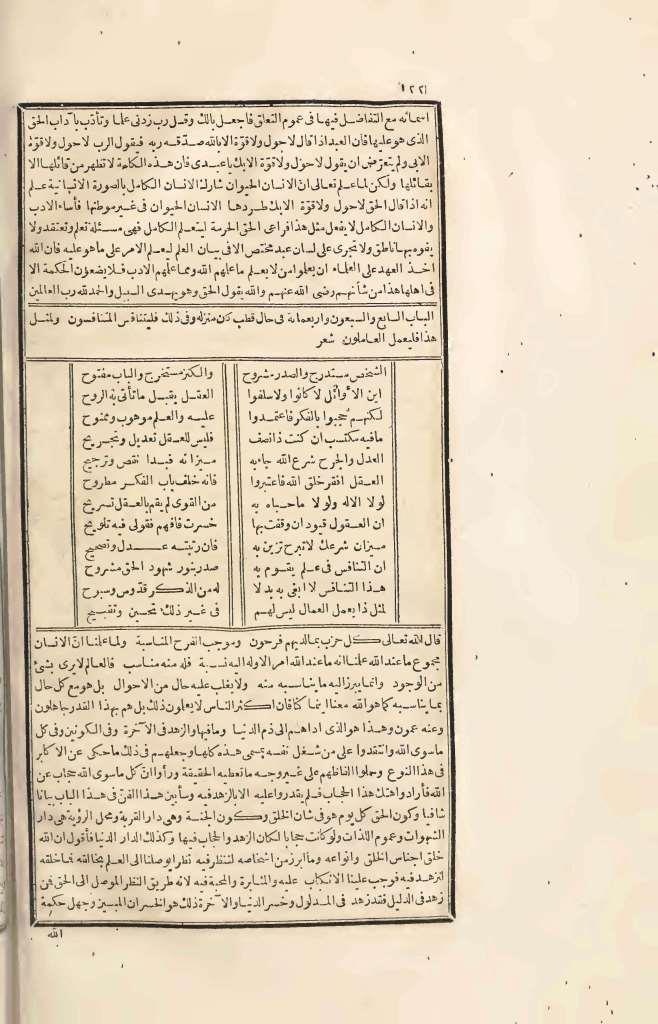 ١٢٢
اسمائه مع التفاضل فيها فى عموم التعلق فاجعل بالك وقل رب زدنى علما وتأدب بآداب الحق
الذى هو عليها فان العبد اذا قال لا حول ولا قوة الا بالله صدقه ربه فيقول الرب لا حول ولا قوة
الا بى ولم يتعرض ان يقول لا حول ولا قوة الا بك يا عبدى فان هذه الكلمة لا تظهر من قائلها الا
بقائلها ولكن لما علم تعالى ان الانسان الحيوان شارك الانسان الكامل بالصورة الانسانية علم
انه اذا قال الحق لا حول ولا قوة الا بك طردها الانسان الحيوان فى غير موطنها فأساء الادب
والانسان الكامل لا يفعل مثل هذا فراعى الحق الحرمة ليتعلم الكامل فهى مسئلة تعلم وتعتقد ولا
يفوه بها ناطق ولا تجرى على لسان عبد مختص الا فى بيان العلم ليعلم الامر على ما هو عليه فان الله
اخذ العهد على العلماء ان يعلموا من لا يعلم ما علمهم الله ومما علمهم الادب فلا يضعون الحكمة الا
فى اهلها هذا من شأنهم رضى الله عنهم والله يقول الحق وهو يهدى السبيل والحمد لله رب العالمين
الباب السابع والسبعون واربعمائة فى حال قطب كان منزله وفى ذلك فليتنافس المتنافسون ولمثل
هذا فليعمل العاملون شعر
الشخص مستدرج والصدر مشروح والكنز مستخرج والباب مفتوح
اين الاوائل لا كانوا ولا سلفوا العقل يقبل ما تأتى به الروح
لكنهم حجبوا بالفكر فاعتمدوا عليه والعلم موهوب وممنوح
ما فيه مكتسب ان كنت ذا نصف فليس للعقل تعديل وتجريح
العدل والجرح شرع الله جاء به ميزانه فبدا نقص وترجيح
العقل افقر خلق الله فاعتبروا فانه خلف باب الفكر مطروح
لولا الاله ولولا ما حباه به من القوى لم يقم بالعقل تسريح
ان العقول قيود ان وثقت بها خسرت فافهم فقولى فيه تلويح
ميزان شرعك لا تبرح تزين به فان رتبته عدل وتصحيح
ان التنافس فى علم يقوم به صدر بنور شهود الحق مشروح
هذا التنافس لا ابغى به بدلا له من الذكر قدوس وسبوح
لمثل ذا يعمل العمال ليس لهم فى غير ذلك تحسين وتقبيح
قال الله تعالى كل حزب بما لديهم فرحون وموجب الفرح المناسبة ولما علمنا ان الانسان
مجموع ما عند الله علمنا انه ما عند الله امر الا وله اليه نسبة فله منه مناسب فالعالم لا يرى بشئ
من الوجود وانما يبرز اليه ما يناسبه منه ولا يغلب عليه حال من الاحوال بل هو مع كل حال
بما يناسبه كما هو الله معنا اينما كنا فان اكثر الناس لا يعلمون ذلك بل هم بهذا القدر جاهلون
وعنه عمون وهذا هو الذى اداهم الى ذم الدنيا وما فيها والزهد فى الآخرة وفى الكونين وفى كل
ما سوى الله وانتقدوا على من شغل نفسه بمسمى هذه كلها وجعلهم فى ذلك ما حكى عن الاكابر
فى هذا النوع وحملوا الفاظهم على غير وجه ما تعطيه الحقيقة ورأوا ان كل ما سوى الله حجاب عن
الله فأرادوا هتك هذا الحجاب فلم يقدروا عليه الا بالزهد فيه وسأبين هذا الفن فى هذا الباب بيانا
شافيا وكون الحق كل يوم هو فى شان الخلق وكون الجنة وهى دار القربة ومحل الرؤية هى دار
الشهوات وعموم اللذات ولو كانت حجابا لكان الزهد والحجاب فيها وكذلك الدار الدنيا فأقول ان الله
خلق اجناس الخلق وانواعه وما ابرز من اشخاصه لننظر فيه نظرا يوصلنا الى العلم بخالقه فما خلقه
لنزهد فيه فوجب علينا الانكباب عليه والمثابرة والمحبة فيه لانه طريق النظر الموصل الى الحق فمن
زهد فى الدليل فقد زهد فى المدلول وخسر الدنيا والآخرة ذلك هو الخسران المبين وجهل حكمة
الله